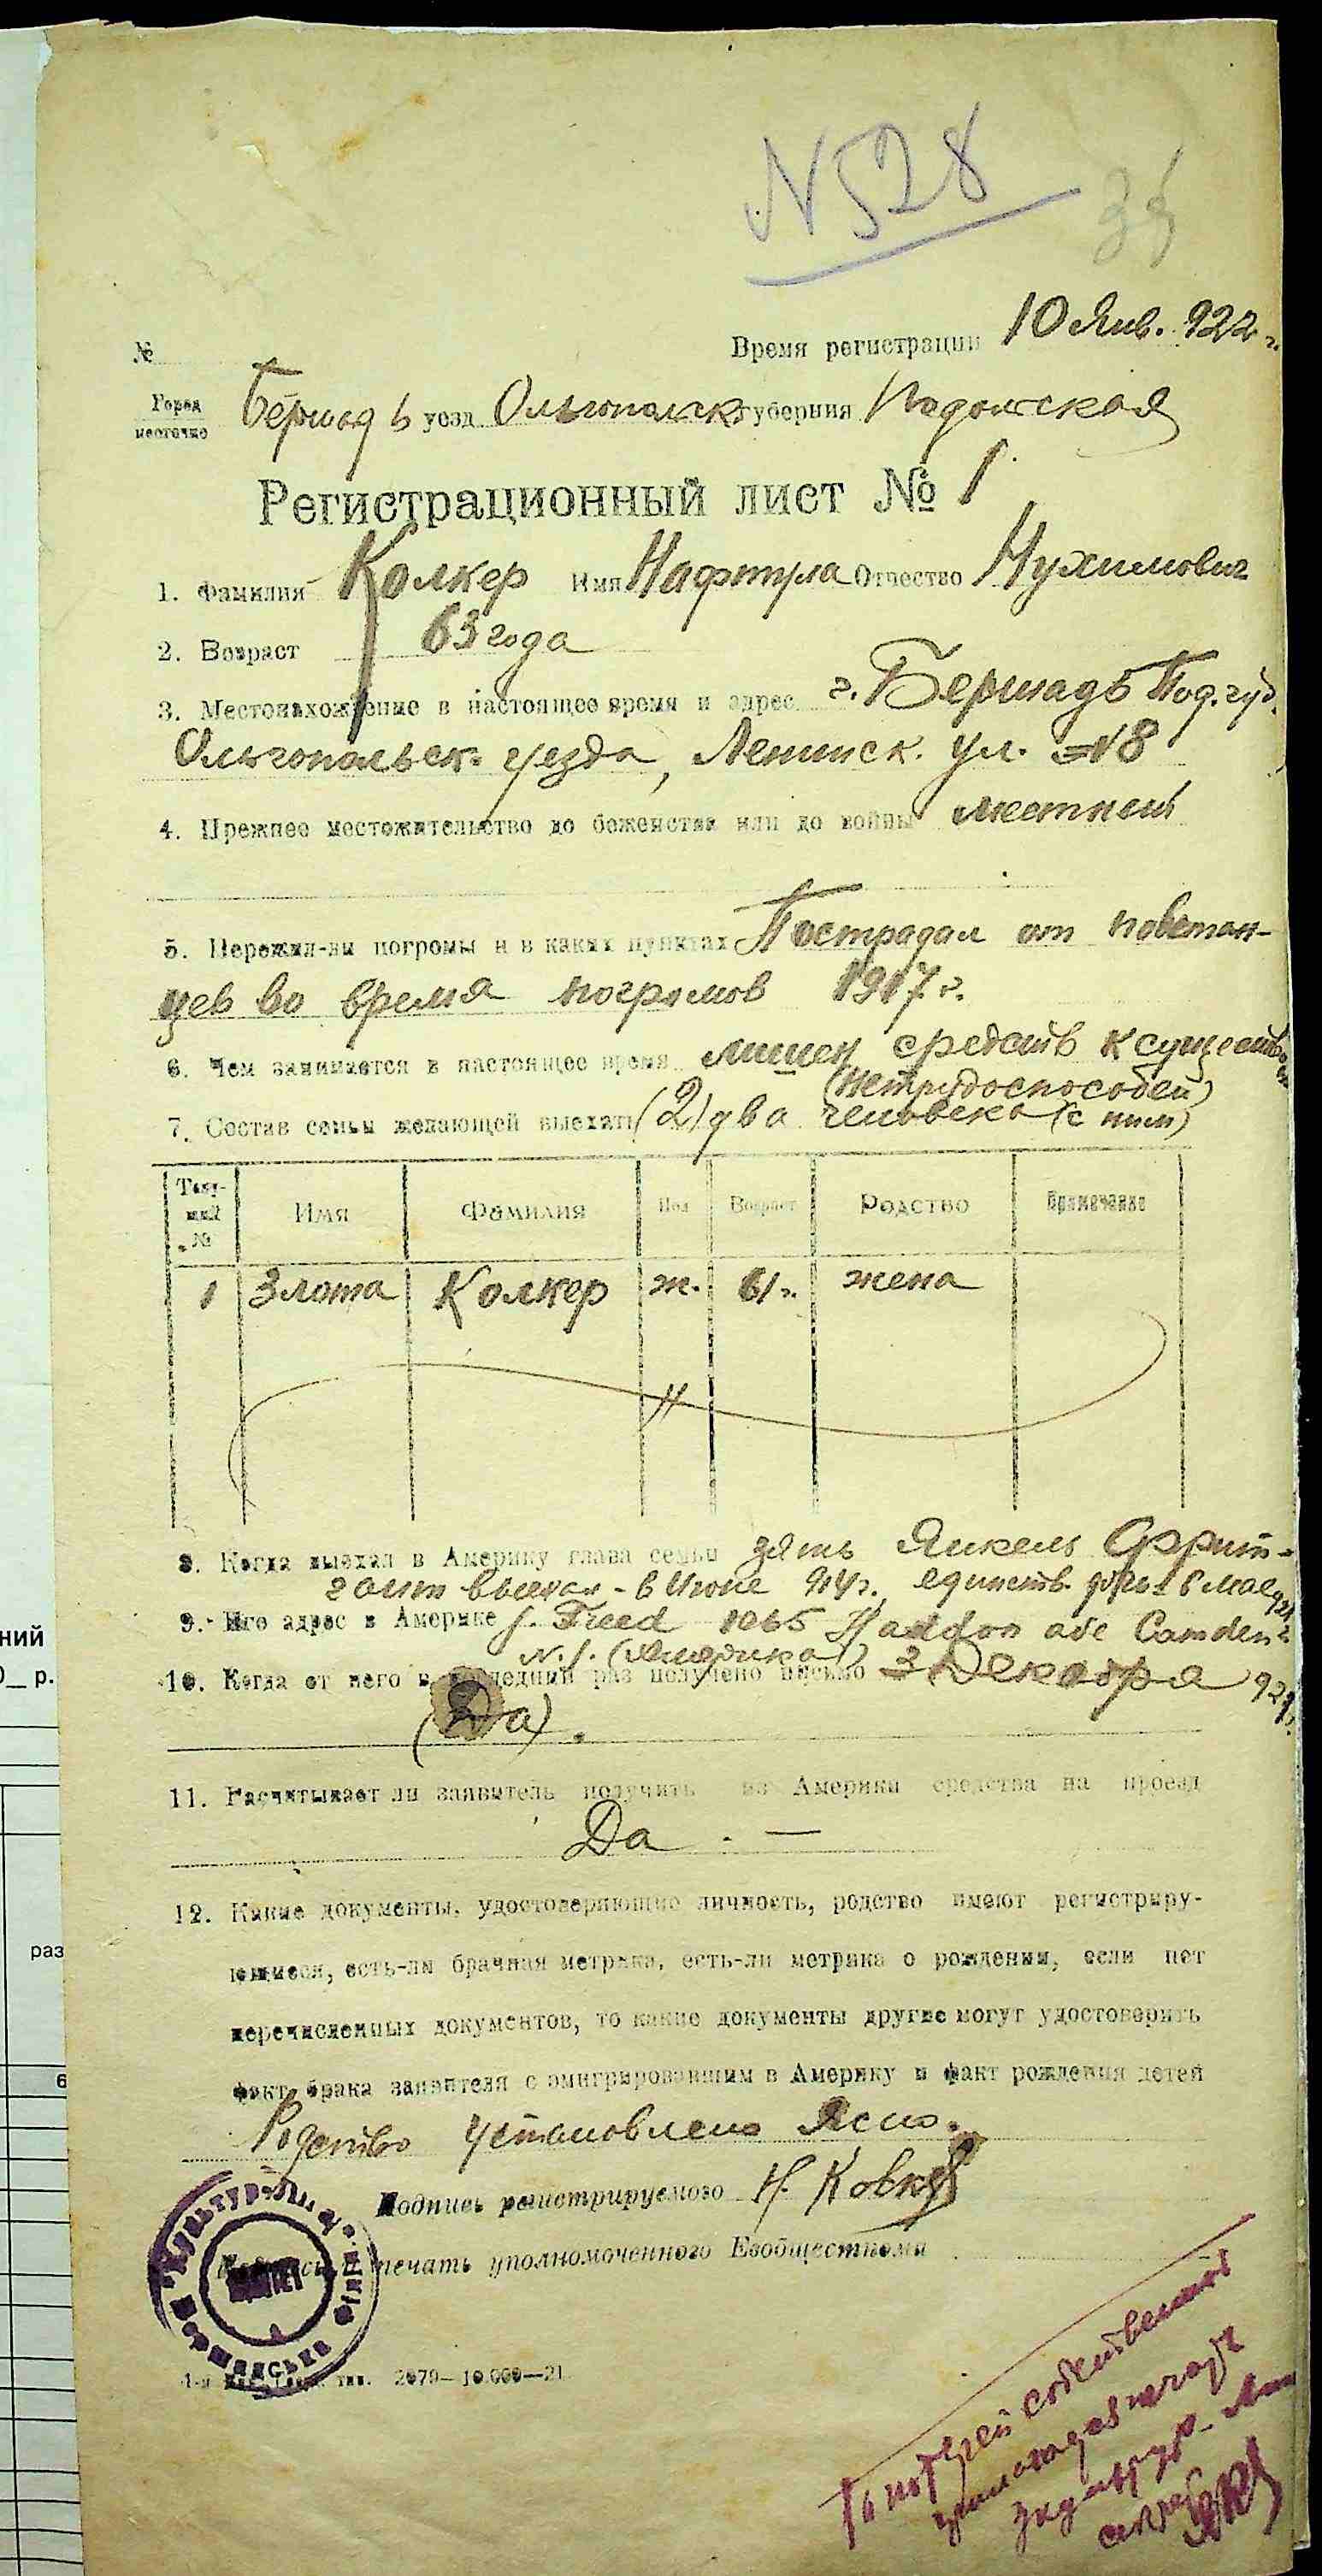 N 528
35
№
Время регистрации 10 Янв. 922 г.
Город местечко Бершадь уезд Ольгопольск губерния Подольская
Регистрационный лист № 1
1. Фамилия Колкер Имя Нафтула Отчество Нухимович
2. Возраст 63 года
3. Местонахождение в настоящее время и адрес г. Бершадь Под. губ.
Ольгопольск. уезда, Ленинск. ул. № 8
4. Прежнее местожительство до беженства или до войны местный
5. Пережил-ли погромы и в каких пунктах Пострадал от повстан-
цев во время погромов 1917 г.
6. Чем занимается в настоящее время лишен средств к существ
(нетрудоспособен)
7. Состав семьи желающей выехать (2) два человека (с ним)
Теку-щий № Имя Фамилия Пол Возраст Родство Примечание
1 Злота Колкер ж. 61 г. жена
8. Когда выехал в Америку глава семьи зять Янкель Фрит-
выехал - в Июне 914 г., единств. дочь в Мае 921
9. Его адрес в Америке J. Freed 1065 Haddon ave Camden
N. J. (Америка)
10. Когда от него в последний раз получено письмо 3 Декабря 921 г.
(Да).
11. Расчитывает ли заявитель получить из Америки средства на проезд
Да . —
12. Какие документы, удостоверяющие личность, родство имеют регистриру-
ющиеся, есть-ли брачная метрика, есть-ли метрика о рождении, если нет
перечисленных документов, то какие документы другие могут удостоверить
факт брака заявителя с эмигрировавшим в Америку и факт рождения детей
Родство установлено Ясно.
Подпись регистрируемого Н. Колкер
Подпись и печать уполномоченного Евобщесткома
тип. 2079—10.000—21
ний
0__ р.
раз
6